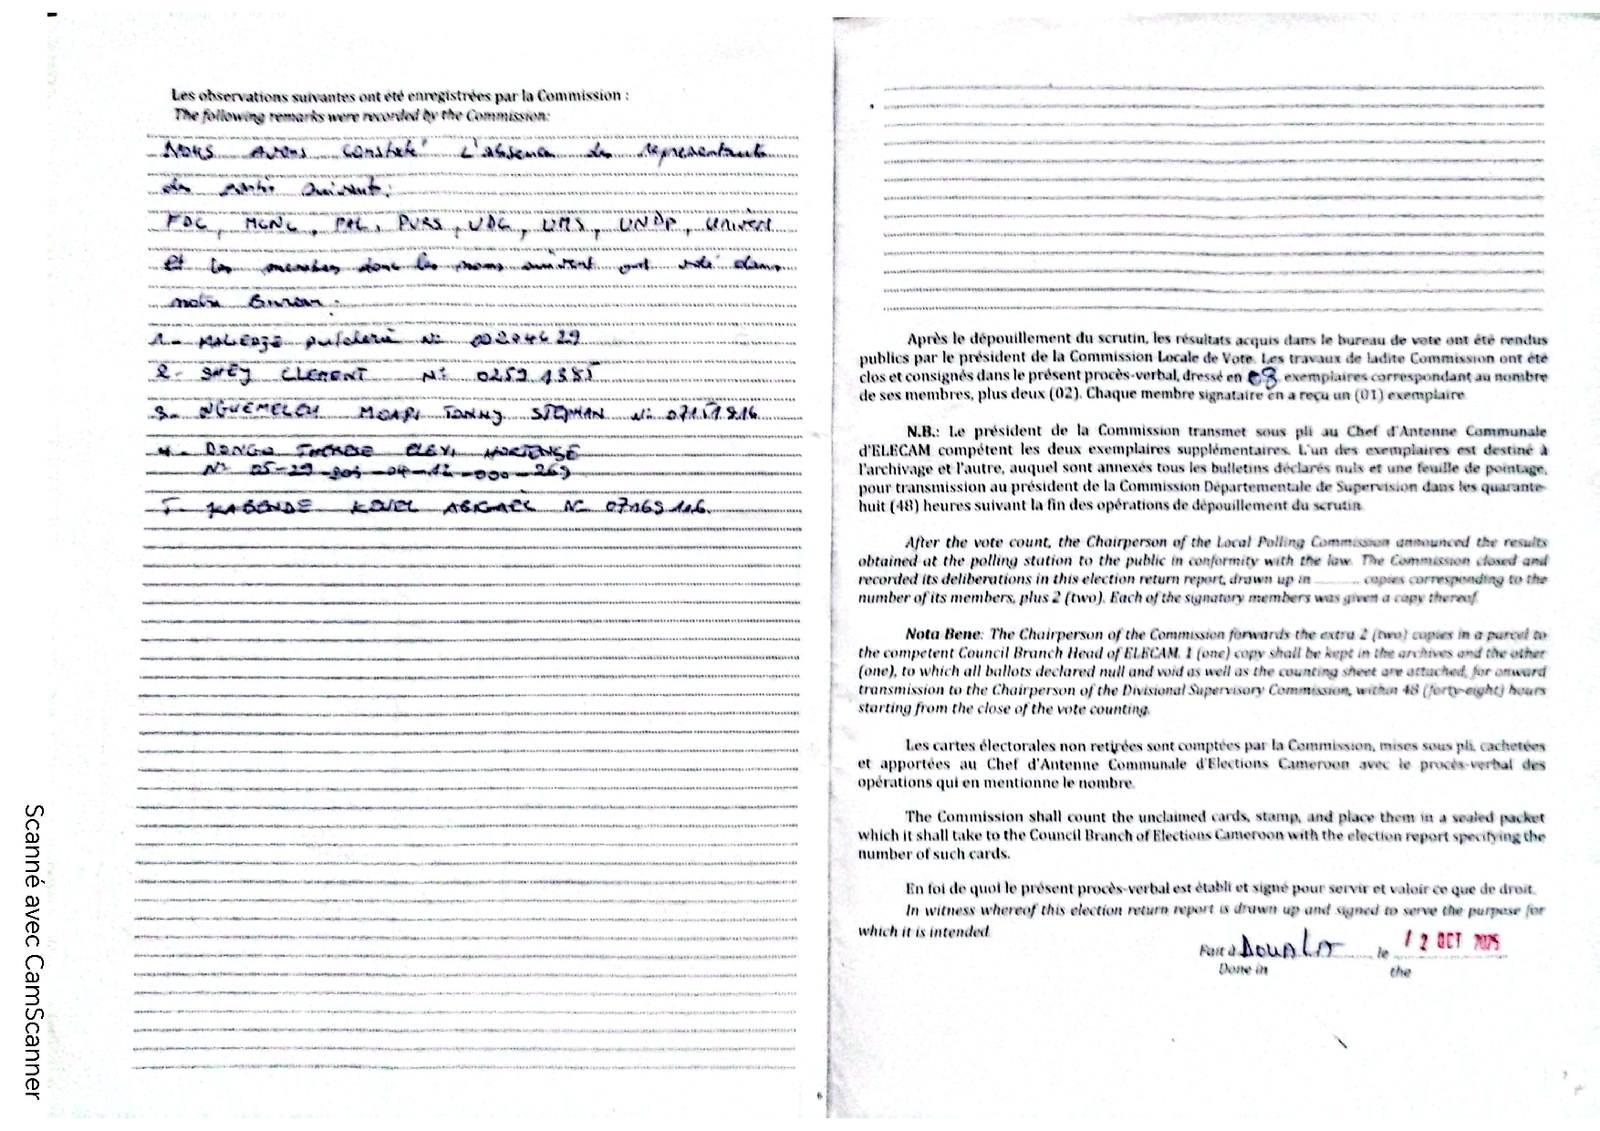 Les observations suivantes ont été enregistrées par la Commission :
The following remarks were recorded by the Commission:
Nous avons constaté L'absence des représentants
des partis suivant:
FDC, MCNC, PAL, PURS, UDC, UMS, UNDP, UNIVERS
et les membres dont les noms suivent ont voté dans
notre Bureau :
1.- Pulcherie N°
2- CLEMENT N° 0259 1385
3.- TONNY N°
4.- DONGO THERESE HORTENSE
N° 05-29-
5- ABIGAEL N° 07169116.
6
Après le dépouillement du scrutin, les résultats acquis dans le bureau de vote ont été rendus
publics par le président de la Commission Locale de Vote. Les travaux de ladite Commission ont été
clos et consignés dans le présent procès-verbal, dressé en 08 exemplaires correspondant au nombre
de ses membres, plus deux (02). Chaque membre signataire en a reçu un (01) exemplaire.
N.B.: Le président de la Commission transmet sous pli au Chef d'Antenne Communale
d'ELECAM compétent les deux exemplaires supplémentaires. L'un des exemplaires est destiné à
l'archivage et l'autre, auquel sont annexés tous les bulletins déclarés nuls et une feuille de pointage,
pour transmission au président de la Commission Départementale de Supervision dans les quarante-
huit (48) heures suivant la fin des opérations de dépouillement du scrutin.
After the vote count, the Chairperson of the Local Polling Commission announced the results
obtained at the polling station to the public in conformity with the law. The Commission closed and
recorded its deliberations in this election return report, drawn up in .......... copies corresponding to the
number of its members, plus 2 (two). Each of the signatory members was given a copy thereof.
Nota Bene: The Chairperson of the Commission forwards the extra 2 (two) copies in a parcel to
the competent Council Branch Head of ELECAM. 1 (one) copy shall be kept in the archives and the other
(one), to which all ballots declared null and void as well as the counting sheet are attached, for onward
transmission to the Chairperson of the Divisional Supervisory Commission, within 48 (forty-eight) hours
starting from the close of the vote counting.
Les cartes électorales non retirées sont comptées par la Commission, mises sous pli, cachetées
et apportées au Chef d'Antenne Communale d'Elections Cameroon avec le procès-verbal des
opérations qui en mentionne le nombre.
The Commission shall count the unclaimed cards, stamp, and place them in a sealed packet
which it shall take to the Council Branch of Elections Cameroon with the election report specifying the
number of such cards.
En foi de quoi le présent procès-verbal est établi et signé pour servir et valoir ce que de droit.
In witness whereof this election return report is drawn up and signed to serve the purpose for
which it is intended.
Fait à Douala le 12 OCT 2025
Done in the
Scanné avec CamScanner